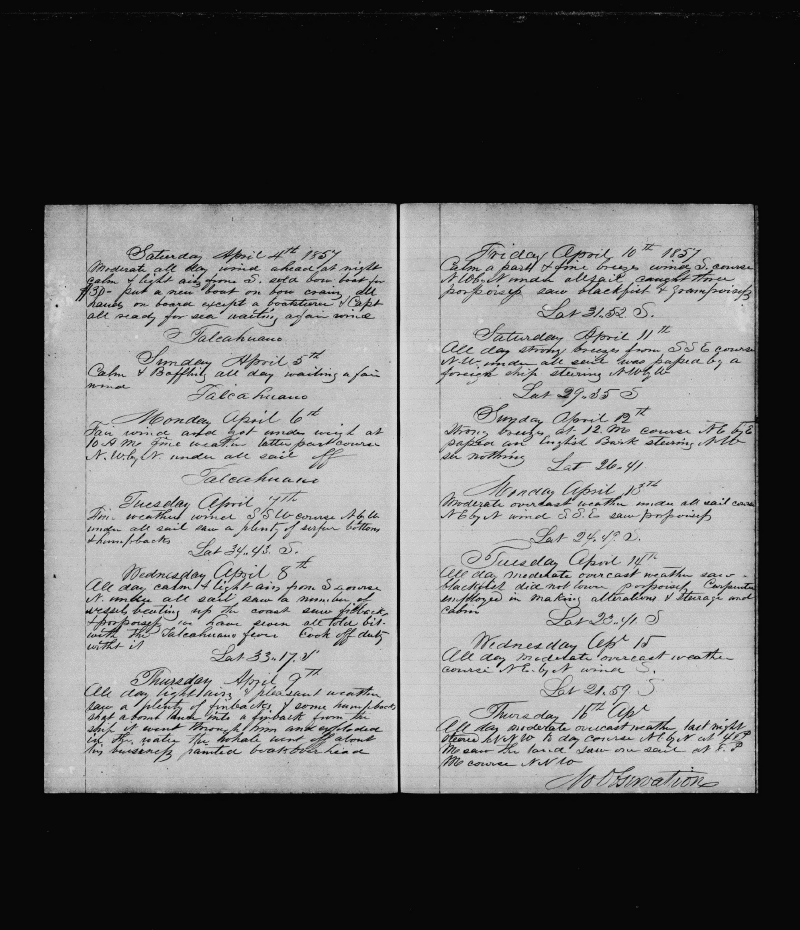 Saturday April 4th 1857
Moderate all day wind ahead at night
calm & light airs from S. sold bow boat for
$30- put a new boat on bow crains all
hands on board except a boatsteerer & Capt
all ready for sea waiting a fair wind
Talcahuano
Sunday April 5th
Calm & Baffling all day waiting a fair
wind
Talcahuano
Monday April 6th
Fair wind and got under weigh at
10 A M fine weather latter part course
N.W.by N. under all sail off
Talcahuano
Tuesday April 7th
Fine weather wind S S W course N.W
under all sail saw a plenty of sulfur bottoms
& humpbacks
Lat 34.43. S.
Wednesday April 8th
All day calm & light airs from S course
N. under all sail saw a number of
vessels beating up the coast saw finbacks
& porpoises we have seven all told
with the Talcahuano fever Cook off duty
with it
Lat 33.17. S
Thursday April 9th
All day light airs & pleasant weather
saw a plenty of finbacks & some humpbacks
shot a bomb lance into a finback from the
ship it went through him and exploded
in the water the whale went off about
his business painted boat overhead
Friday April 10th 1857
Calm a part & fine breezes wind S. course
N.W.by N under all sail, caught three
porpoises saw blackfish & grampuses
Lat 31.52 S.
Saturday April 11th
All day strong breezes from S S E course
N.W, under all sail was passed by a
foreign ship steering N W by W
Lat 29.35 S
Sunday April 12th
Strong breezes at 12 M course N.E by E
passed an English Bark steering N W
see nothing
Lat 26.41
Monday April 13th
Moderate overcast weather under all sail course
N E by N wind S.S.E saw porpoises
Lat 24.49 S.
Tuesday April 14th
All day moderate overcast weather saw
blackfish did not lower porpoises Carpenter
employed in making alterations & steerage and
cabin
Lat 23.41 S
Wednesday Apr 15
All day moderate overcast weather
course N.E.by N wind S.
Lat 21.59 S
Thursday 16th Apr
All day moderate overcast weather last night
steered N.N.W to day course N E by N at 4 P
M saw the land saw one sail at P
M course N N W
No Observation